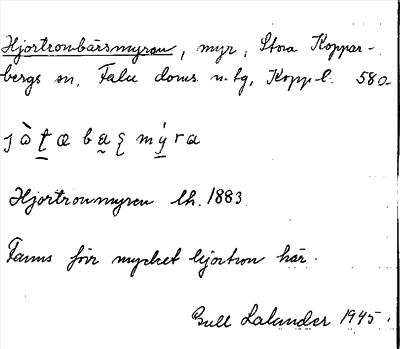 Hjortronbärsmyran, myr, Stora Koppar-
bergs sn, Falu doms. n. tg, Kopp. l. 580
Hjortronmyren lh. 1883
Fanns förr mycket hjortron här.
Gull Lalander 1945.